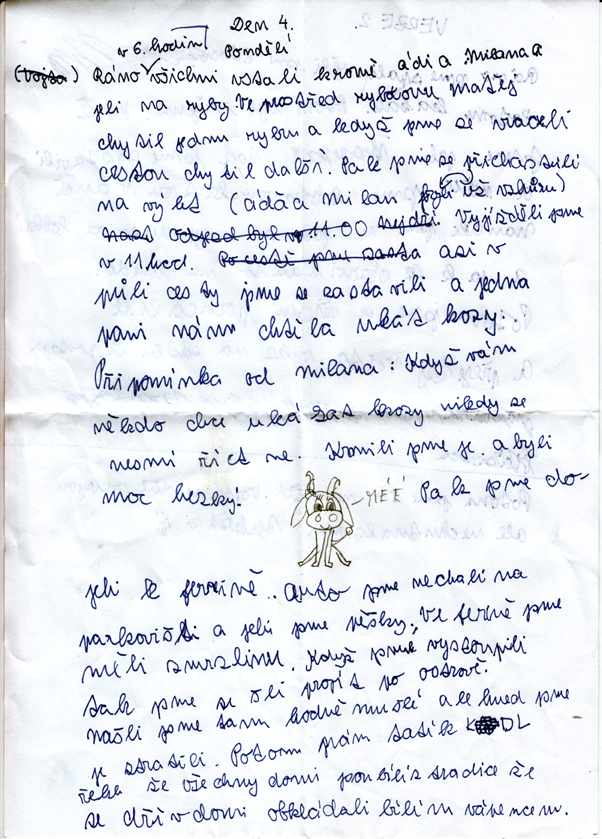 Den 4.
v 6. hodin Pondělí
(Vojta) Ráno všichni vstali kromě ádi a Milana a
jeli na ryby. Ve prostřed rybolovu matěj
chytil jednu rybu a když jsme se vraceli
cestou chytil další. Pak jsme se přichastali
na výlet (ádá a Milan byli už vzhůru)
nast odjezd byl v 11.00 nejdří. Vyjížděli jsme
v 11 hod. Po cestě jsme zasta asi v
půli cesty jsme se zastavili a jedna
pani nám chtěla ukáz kozy.
Připomínka od milana: Když vám
někdo chce ukázat kozy nikdy se
nesmí říct ne. Krmili jsme je a byli
moc hezký. MÉÉ Pak jsme do-
jeli k ferrině. auto jsme nechali na
parkovišti a jeli jsme pěšky. Ve ferrině jsme
měli zmrzlinu. Když jsme vystoupili
tak jsme se šli projít po ostrově.
našli jsme tam hodně mušlí ale hned jsme
je ztratili. Potom nám tatík K DL
řekl že všechny domi jsou bílí z tradice že
se dřív domi obkládali bílím vápencem.